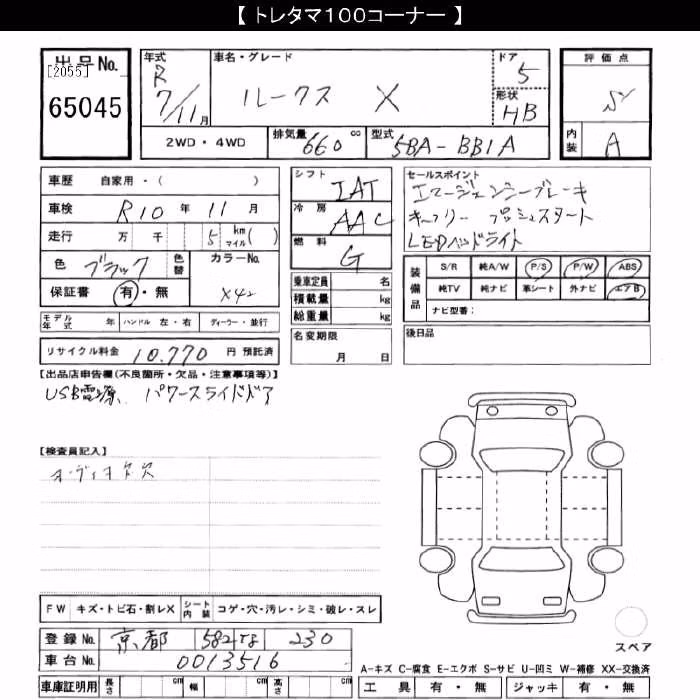 【 トレタマ100コーナー 】
出品No.
[2055]
65045
年式
R
7/11月
車名・グレード
ルークス X
ドア
5
形状
HB
評価点
S
内装
A
2WD・4WD
排気量 660 cc
型式 5BA-BB1A
車歴 自家用・( )
車検 R10 年 11 月
走行 万 千 5 km マイル( )
色 ブラック 色替
カラーNo.
X42
保証書 有・無
シフト IAT
冷房 AAC
燃料 G
乗車定員 名
積載量 kg
総重量 kg
セールスポイント
エマージェンシーブレーキ
キーフリー プッシュスタート
LEDヘッドライト
装備品
S/R 純A/W P/S P/W ABS
純TV 純ナビ 革シート 外ナビ エアB
ナビ型番:
モデル年式 年 ハンドル 左・右 ディーラー・並行
名変期限
月 日
後日品
リサイクル料金 10,770 円 預託済
【出品店申告欄(不良箇所・欠品・注意事項等)】
USB電源、 パワースライドドア
【検査員記入】
オーディオ欠欠
FW キズ・トビ石・割レX シート内装 コゲ・穴・汚レ・シミ・破レ・スレ
登録No. 京都 582 230
車台No. 0013516
車庫証明用 長さ cm 幅 cm 高さ cm
スペア
A-キズ C-腐食 E-エクボ S-サビ U-凹ミ W-補修 XX-交換済
工具 有・無 ジャッキ 有・無